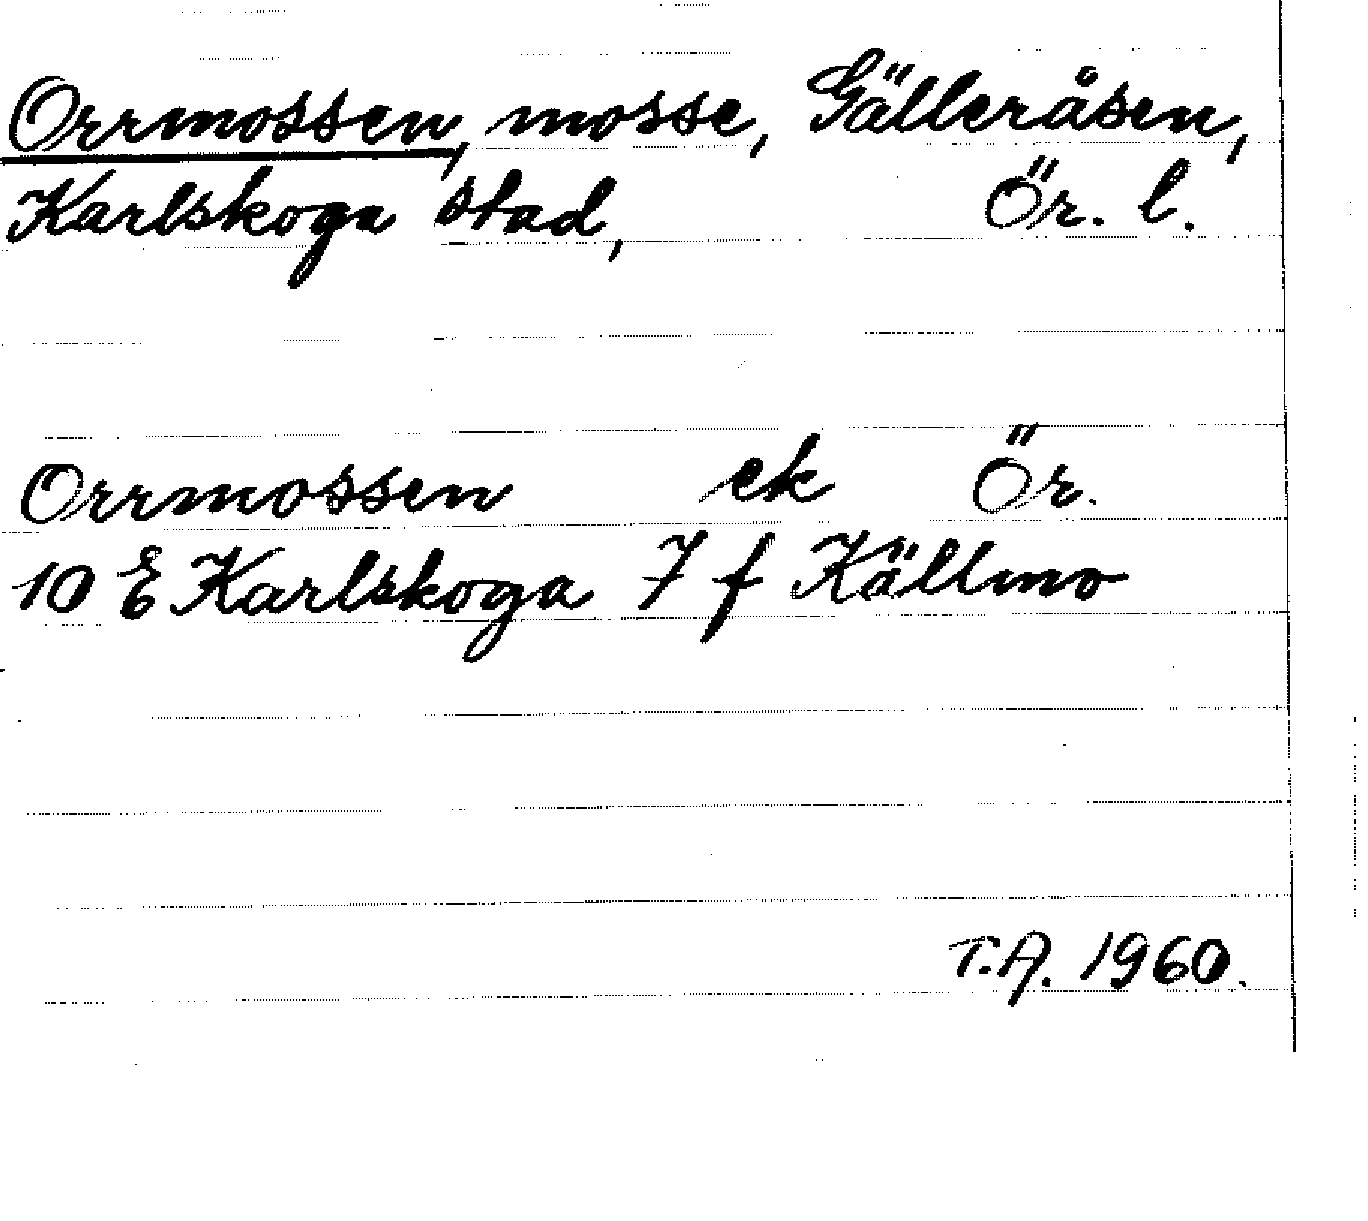 Orrmossen, mosse, Gälleråsen,
Karlskoga stad, Ör. l.
Orrmossen ek Ör.
10 E Karlskoga 7 f Källmo
T.A. 1960.